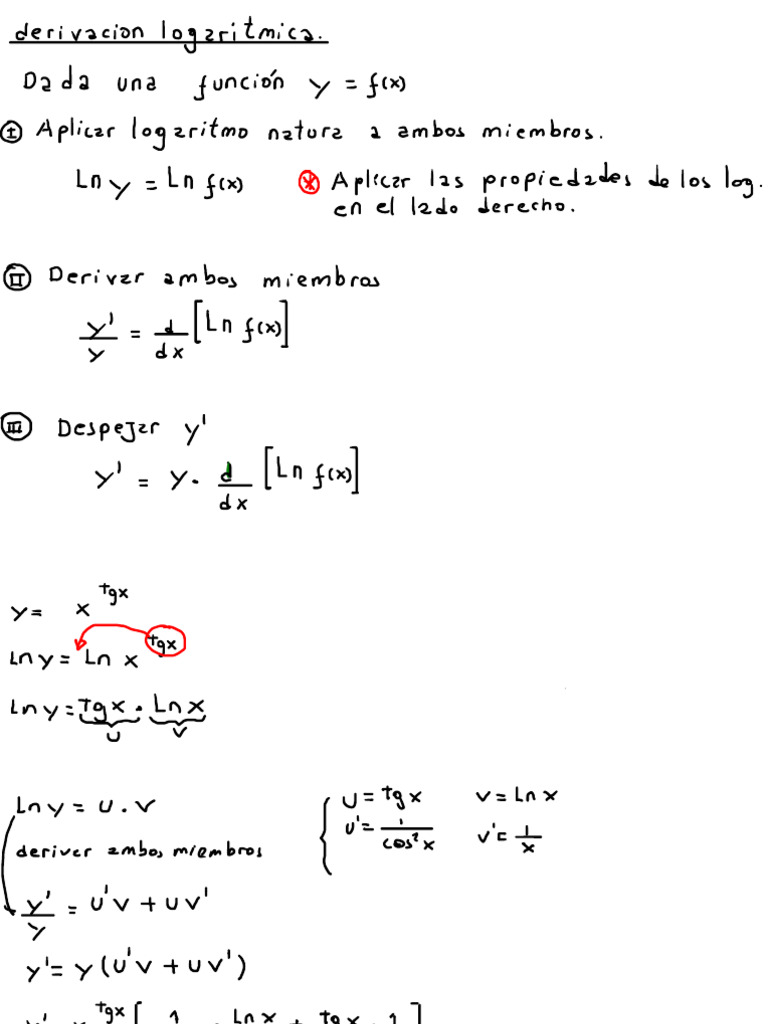 derivacion logaritmica.
Dada una función y = f(x)
I Aplicar logaritmo natura a ambos miembros.
Ln y = Ln f(x) * Aplicar las propiedades de los log.
en el lado derecho.
II Derivar ambos miembros
y'/y = d/dx [Ln f(x)]
III Despejar y'
y' = y · d/dx [Ln f(x)]
y = x^tgx
Ln y = Ln x^tgx
Ln y = Tgx · Ln x
u v
Ln y = u . v
u = tg x v = Ln x
u' = 1/cos² x v' = 1/x
derivar ambos miembros
y'/y = u'v + uv'
y' = y (u'v + uv')
y' = x^tgx [ 1 · Ln x + tgx · 1 ]